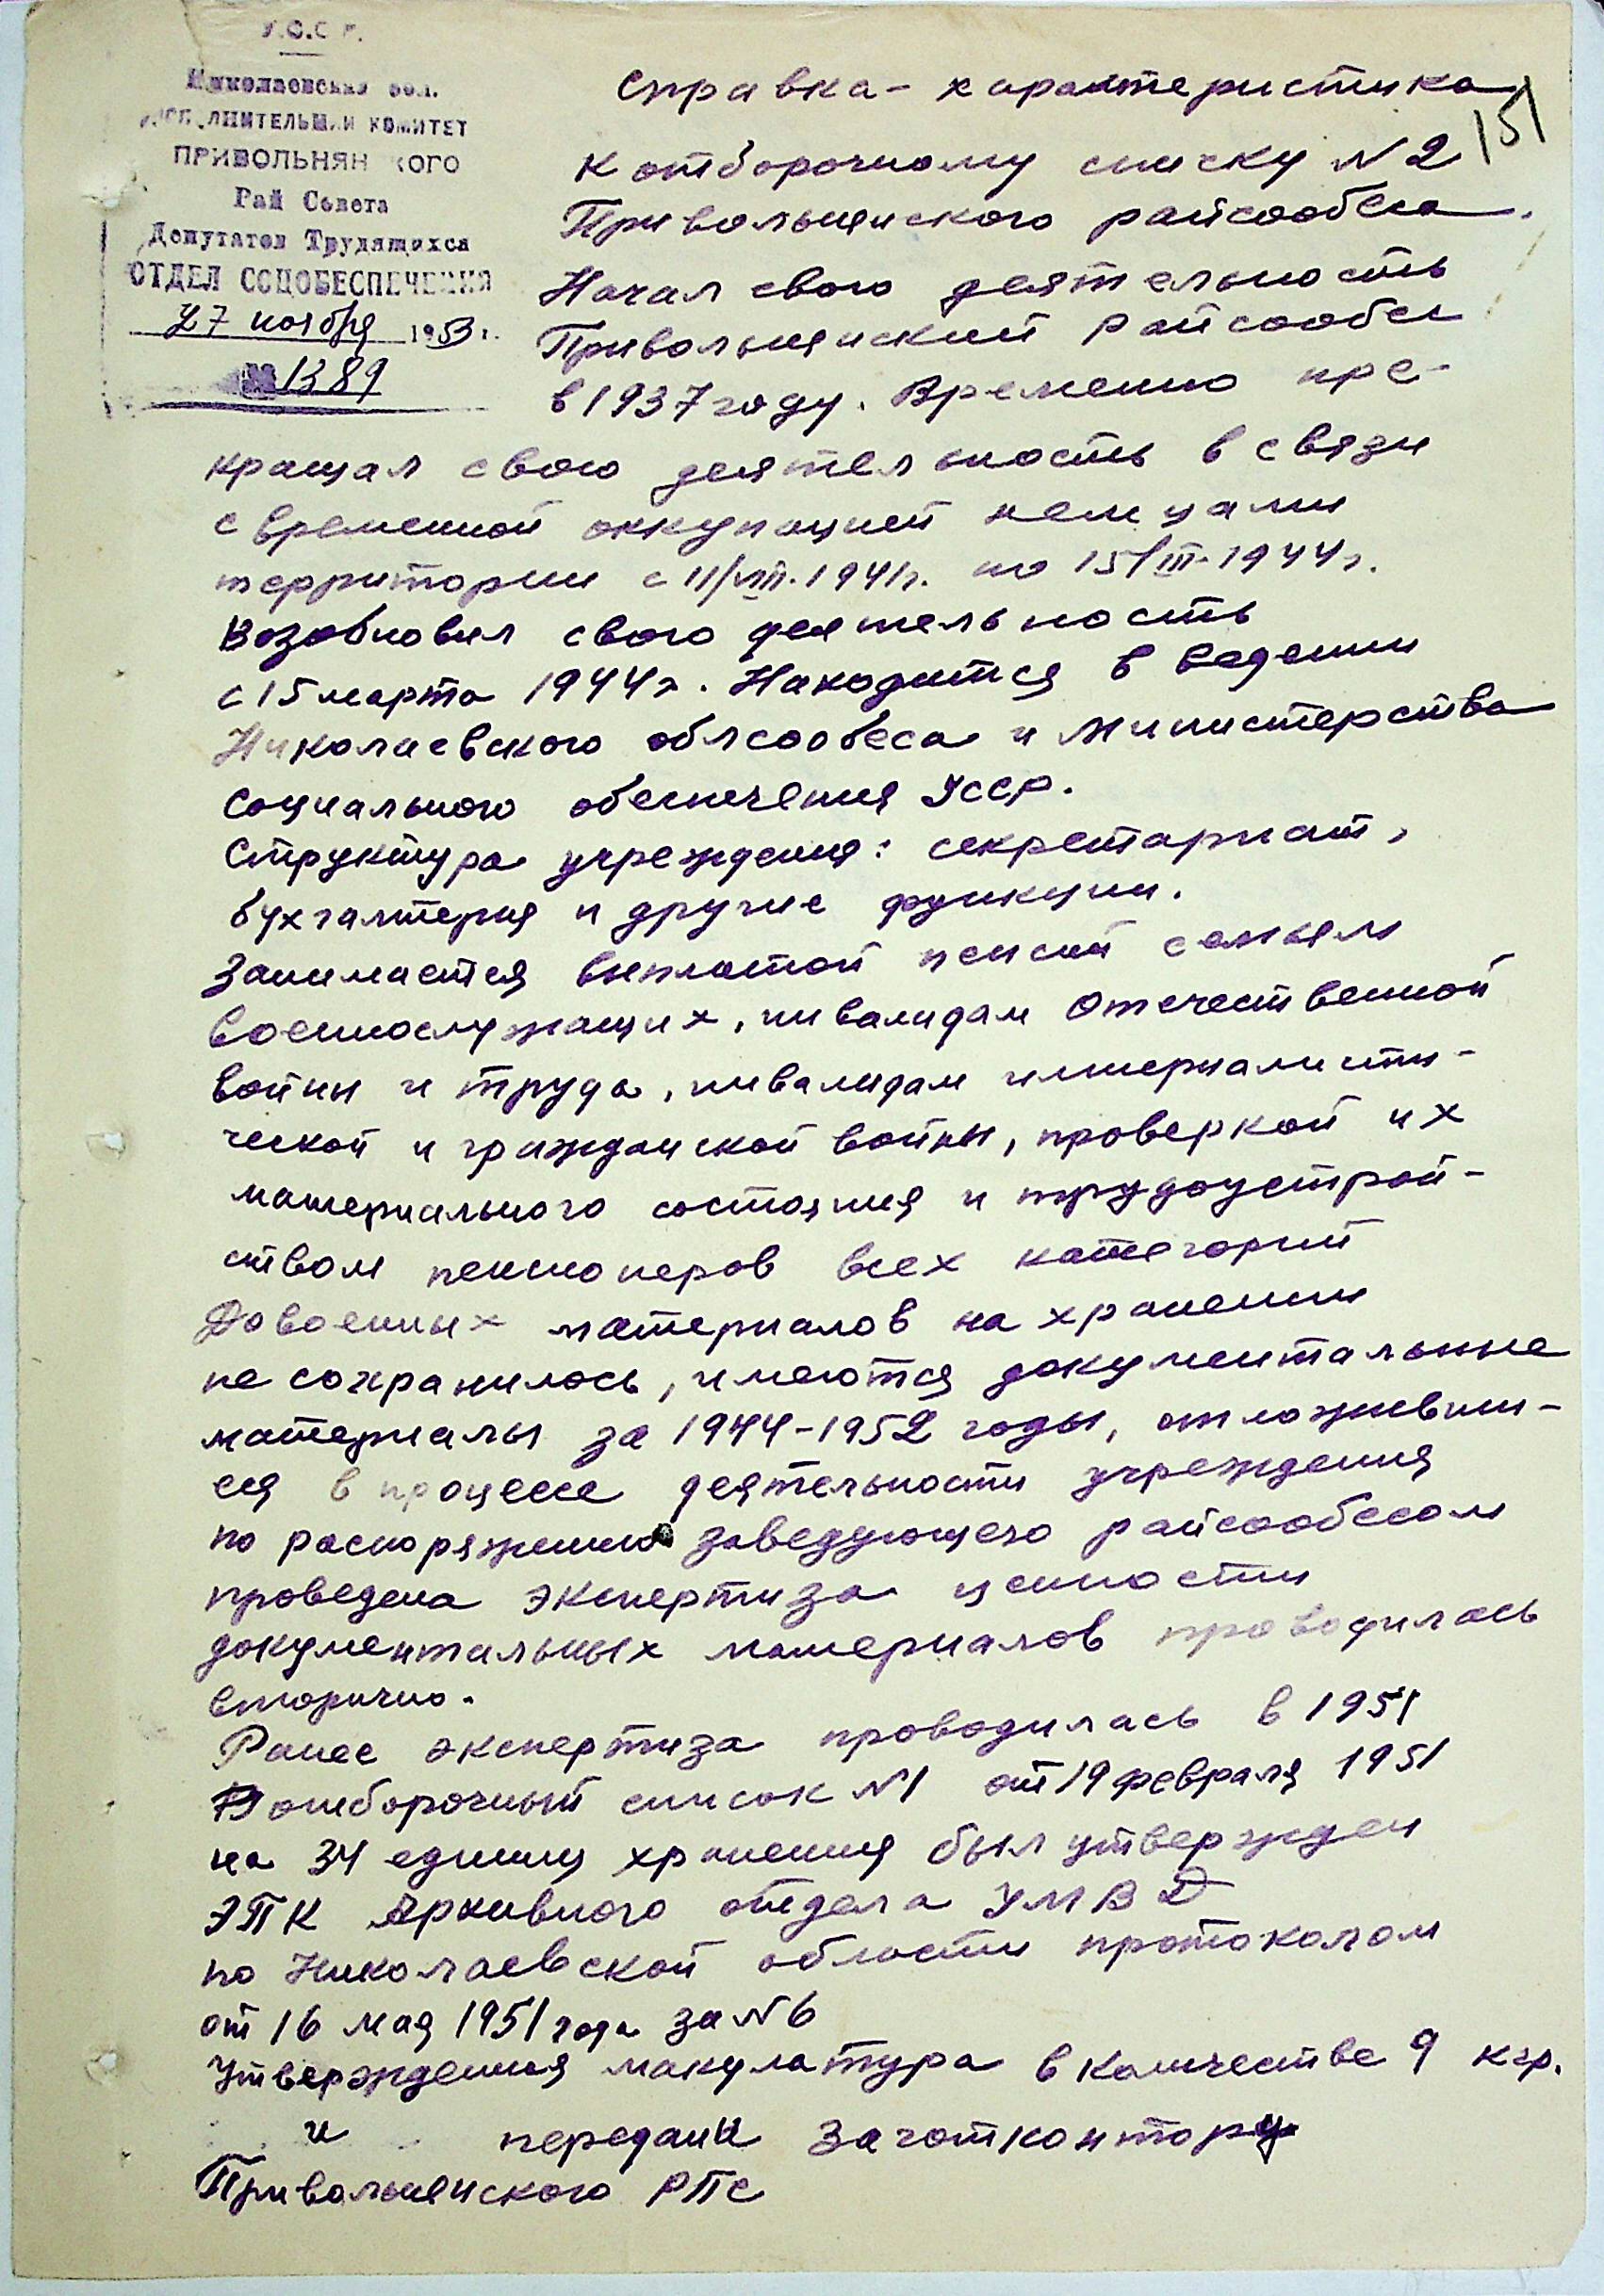 У.С.С.Р.
Николаевская обл.
ИСПОЛНИТЕЛЬНЫЙ КОМИТЕТ
ПРИВОЛЬНЯНСКОГО
Рай Совета
Депутатов Трудящихся
ОТДЕЛ СОЦОБЕСПЕЧЕНИЯ
27 ноября 1953 г.
№ 1389
151
Справка - характеристика
к отборочному списку №2
Привольнянского райсобеса.
Начал свою деятельность
Привольнянский райсобес
в 1937 году. Временно пре-
кращал свою деятельность в связи
с временной оккупацией немцами
территории с 11/VIII.1941г. по 15/III-1944г.
Возобновил свою деятельность
с 15 марта 1944г. Находится в ведении
Николаевского облсобеса и Министерства
Социального обеспечения УССР.
Структура учреждения: секретариат,
бухгалтерия и другие функции.
Занимается выплатой пенсий семьям
военнослужащих, инвалидам Отечественной
войны и труда, инвалидам империалисти-
ческой и гражданской войны, проверкой их
материального состояния и трудоустрой-
ством пенсионеров всех категорий
Довоенных материалов на хранении
не сохранилось, имеются документальные
материалы за 1944-1952 годы, отложивши-
еся в процессе деятельности учреждения
по распоряжению заведующего райсобесом
проведена экспертиза ценности
документальных материалов проводилась
вторично.
Ранее экспертиза проводилась в 1951
отборочный список №1 от 19 февраля 1951
на 34 единиц хранения был утвержден
ЭПК Архивного отдела УМВД
по Николаевской области протоколом
от 16 мая 1951 года за №6
Утверждения макулатура в количестве 9 кгр.
и передана Заготконтору
Привольнянского РПС